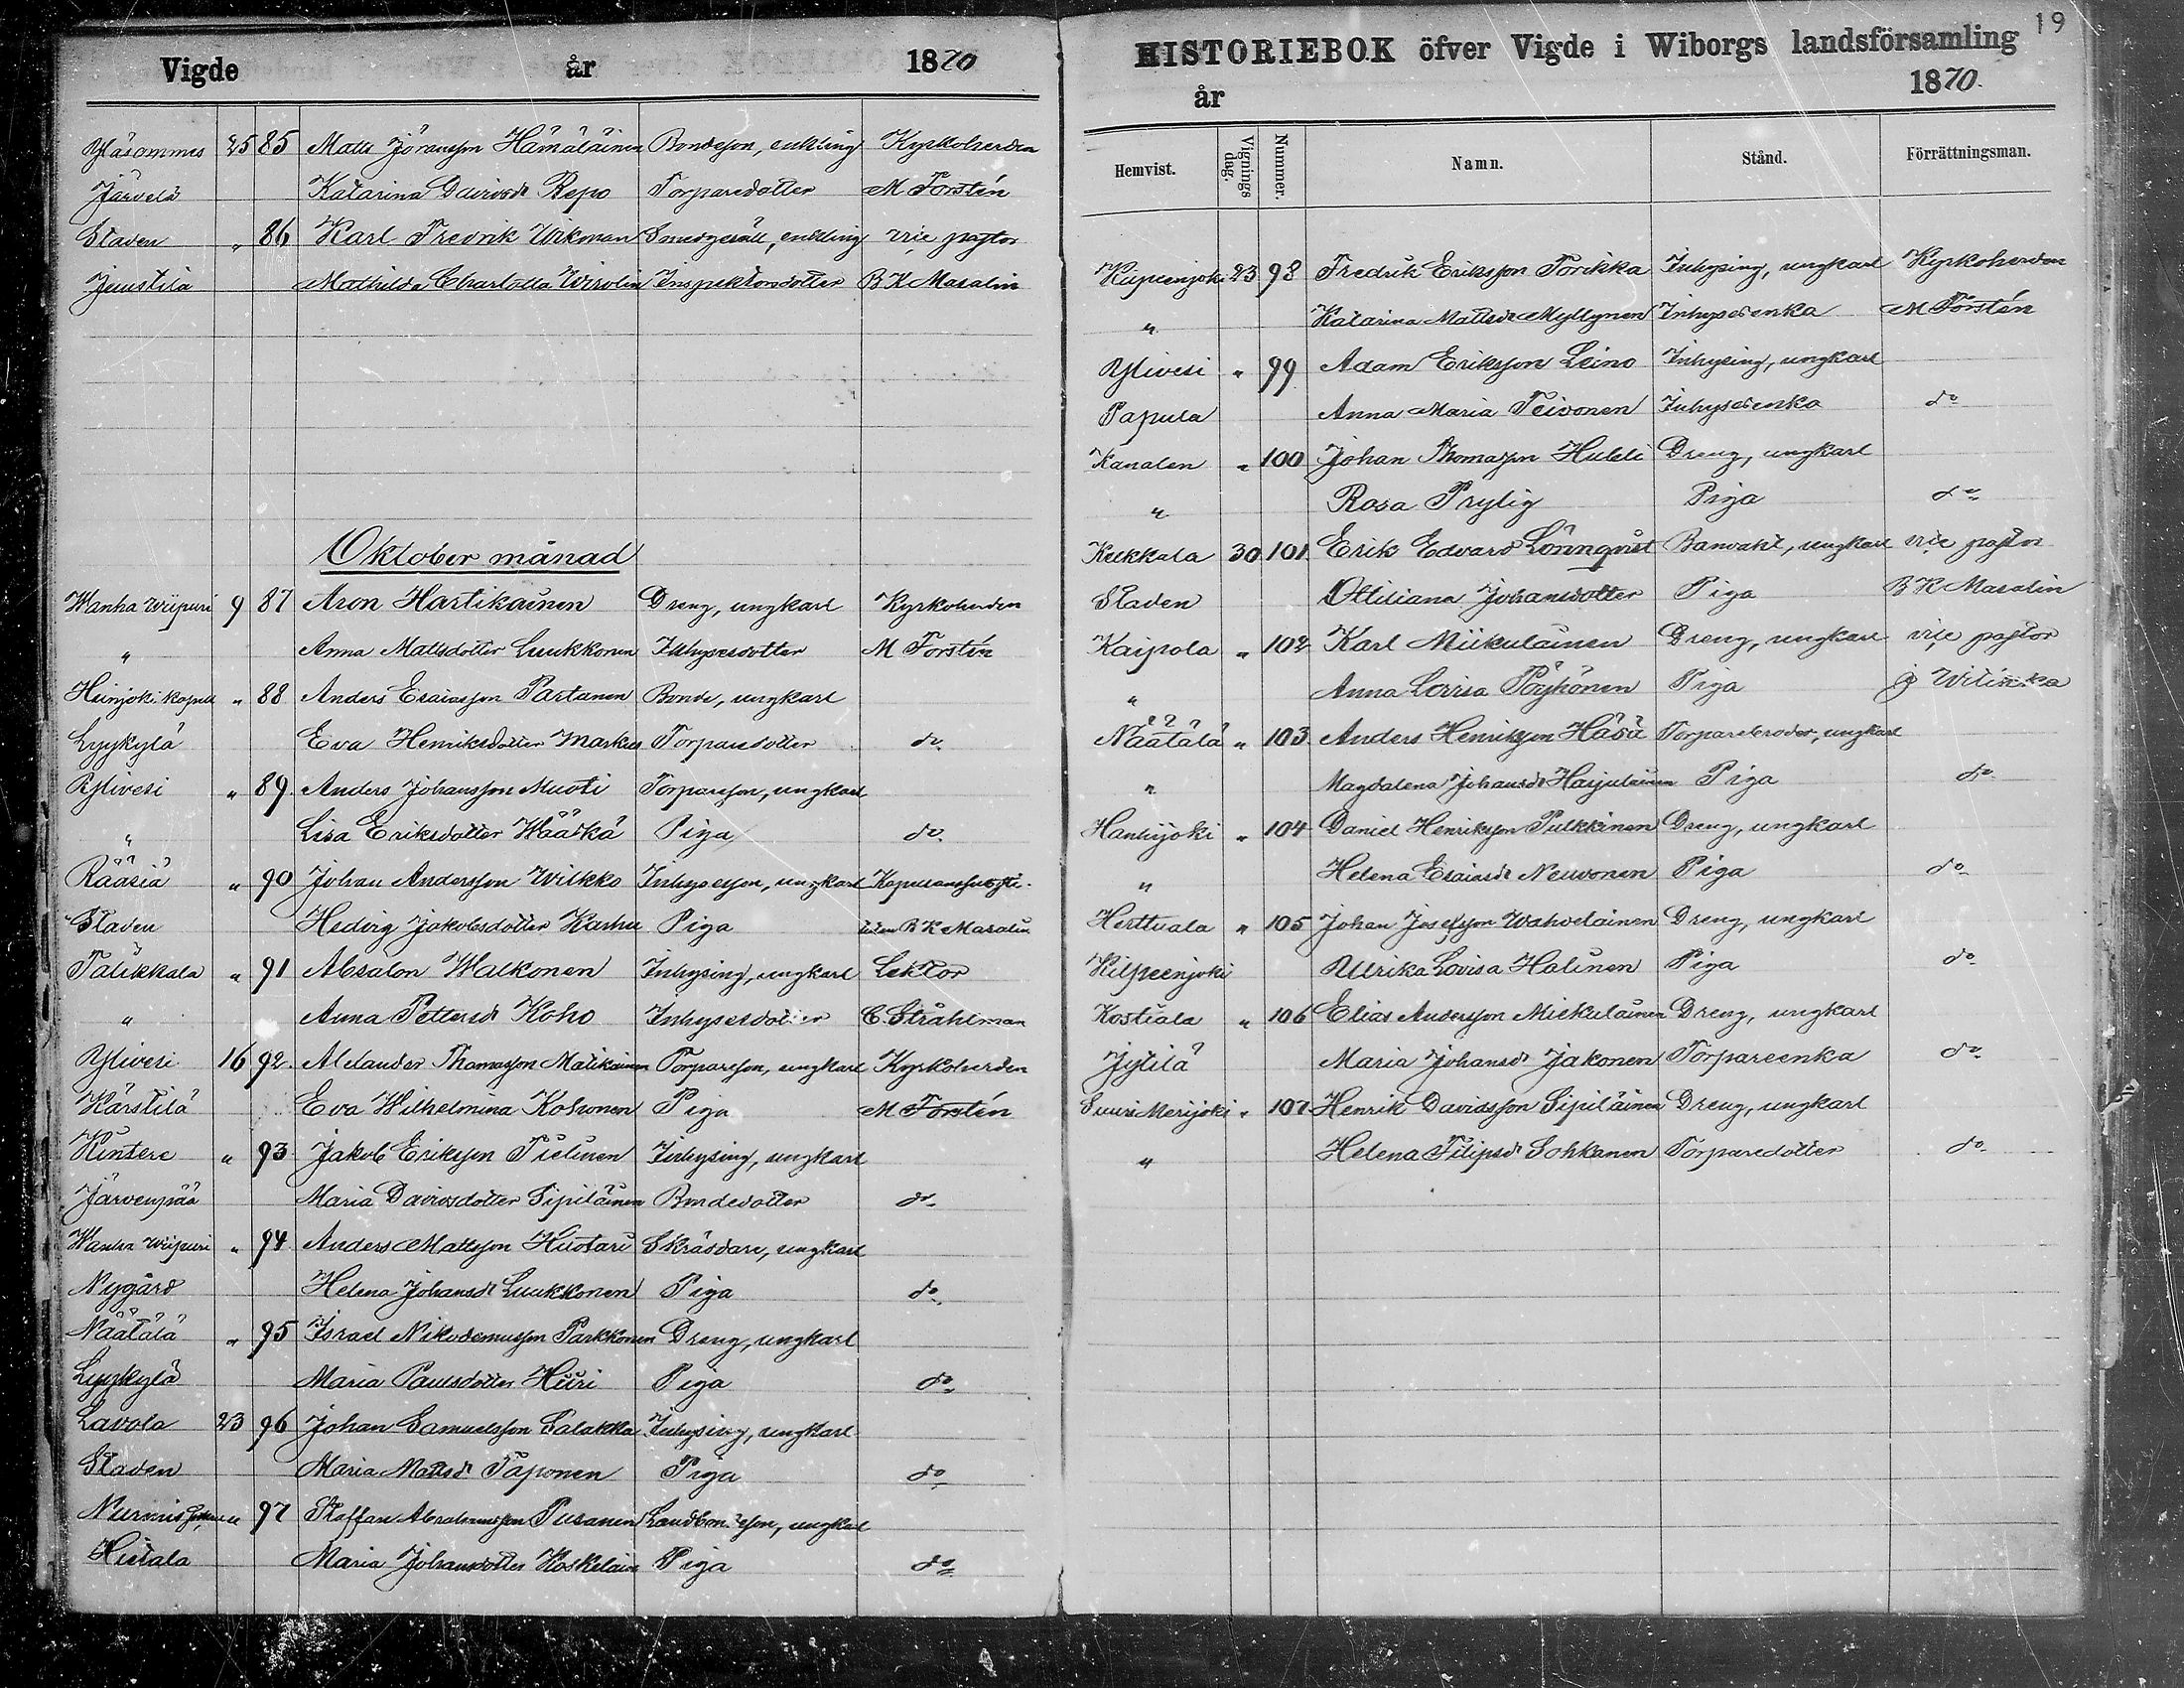 Vigde år 1870
Yläsommes 25 85 Matts Jöransson Hämäläinen Bondeson, enkling Kyrkoherden
Järvelä Katarina Davidsdr Repo Torparedotter M Forstén
Staden " 86 Karl Fredrik Wikman Smedgesäll, enkling vice pastor
Juustila Mathilda Charlotta Wirolin Inspektorsdotter B K Masalin
Oktober månad
Wanha Wiipuri 9 87 Aron Hartikainen Dreng, ungkarl Kyrkoherden
" Anna Mattsdotter Luukkonen Inhysesdotter M Forstén
Heinjoki kapell " 88 Anders Esaiasson Partanen Bonde, ungkarl
Lyykylä Eva Henriksdotter Markus Torparedotter do
Ylivesi " 89. Anders Johansson Muoti Torpareson, ungkarl
" Lisa Eriksdotter Wäätkä Piga do
Rääsiä " 90 Johan Andersson Wilkko Inhyseson, ungkarl
Staden Hedvig Jakobsdotter Karhu Piga B K Masalin
Talikkala " 91 Absalon Walkonen Inhysing, ungkarl Lektor
" Anna Pettersdr Koho Inhysesdotter C. Stråhlman
Ylivesi 16 92. Alexander Thomasson Matikainen Torpareson, ungkarl Kyrkoherden
Kärstilä Eva Wilhelmina Kohonen Piga M Forstén
Kintere " 93 Jakob Eriksson Tielinen Inhysing, ungkarl
Järvenpää Maria Davidsdotter Sipiläinen Bondedotter do
Wanha Wiipuri " 94. Anders Mattsson Huotari Skräddare, ungkarl
Nygård Helena Johansdr Luukkonen Piga do
Näätälä " 95 Israel Nikodemusson Parkkonen Dreng, ungkarl
Lyykylä Maria Paulsdotter Hiiri Piga do
Lavola 23 96 Johan Samuelsson Salakka Inhysing, ungkarl
Staden Maria Mattsdr Taponen Piga do
" 97 Staffan Abrahamsson Pusanen ungkarl
Hietala Maria Johansdotter Koskelain Piga do
19
HISTORIEBOK öfver Vigde i Wiborgs landsförsamling
år 1870.
Hemvist. Vignings dag. Nummer. Namn. Stånd. Förrättningsman.
23 98 Fredrik Eriksson Torikka Inhysing, ungkarl Kyrkoherden
" Katarina Mattsdr Myllynen Inhysesenka M Forstén
Ylivesi " 99 Adam Eriksson Leino Inhysing, ungkarl
Papula Anna Maria Teivonen Inhysesenka do
Kanalen " 100 Johan Thomasson Hubli Dreng, ungkarl
" Rosa Prylig Piga do
Kelkkala 30 101. Erik Edvard Lönnqvist Banvakt, ungkarl vice pastor
Staden Ottiliana Johansdotter Piga B K Masalin
Kaipola " 102 Karl Miikulainen Dreng, ungkarl vice pastor
" Anna Lovisa Pöyhönen Piga J Witikka
Näätälä " 103. Anders Henriksson Häsä Torparebroder, ungkarl
" Magdalena Johansdr Harjulainen Piga do
Hanhijoki " 104 Daniel Henriksson Pulkkinen Dreng, ungkarl
" Helena Esaiasdr Neuvonen Piga do
Herttuala " 105 Johan Josefsson Wahvelainen Dreng, ungkarl
Kilpeenjoki Ulrika Lovisa Holinen Piga do
Kostiala " 106 Elias Andersson Miekulainen Dreng, ungkarl
Jytilä Maria Johansdr Jakonen Torpareenka do
Suuri Merijoki " 107 Henrik Davidsson Sipiläinen Dreng, ungkarl
" Helena Filipsdr Sohkanen Torparedotter do